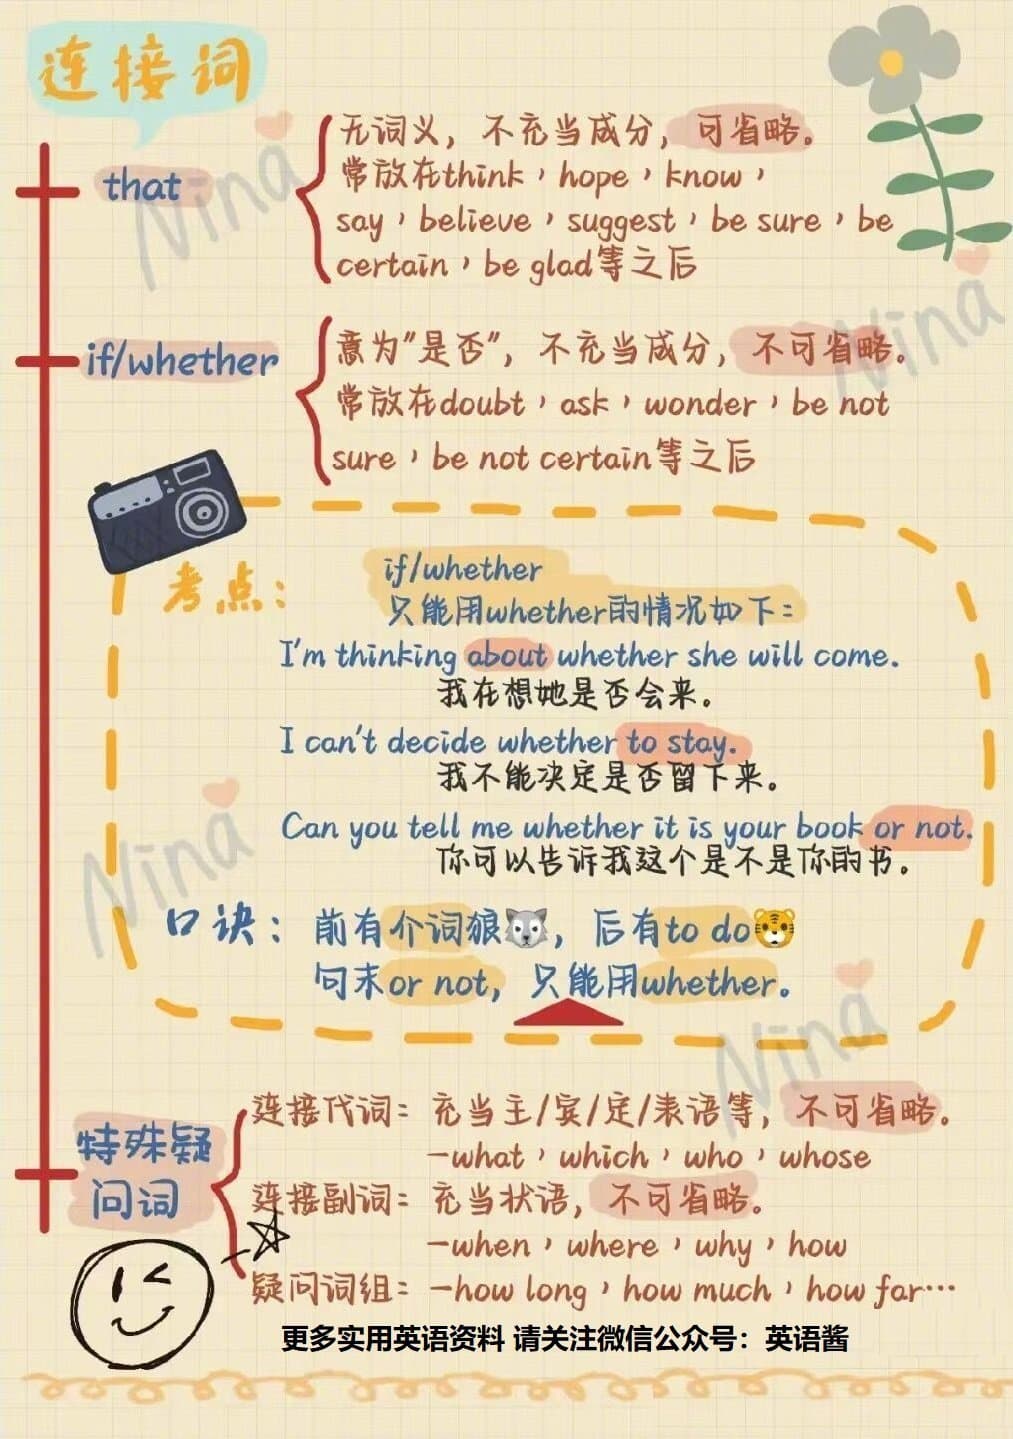 连接词
that
无词义，不充当成分，可省略。
常放在think，hope，know，
say，believe，suggest，be sure，be
certain，be glad等之后
if/whether
意为"是否"，不充当成分，不可省略。
常放在doubt，ask，wonder，be not
sure，be not certain等之后
考点：
if/whether
只能用whether的情况如下：
I'm thinking about whether she will come.
我在想她是否会来。
I can't decide whether to stay.
我不能决定是否留下来。
Can you tell me whether it is your book or not.
你可以告诉我这个是不是你的书。
口诀：前有介词狼🐺，后有to do🐯
句末or not，只能用whether。
特殊疑
问词
连接代词：充当主/宾/定/表语等，不可省略。
—what，which，who，whose
连接副词：充当状语，不可省略。
—when，where，why，how
疑问词组：—how long，how much，how far…
更多实用英语资料 请关注微信公众号：英语酱
Nina
Nina
Nina
Nina